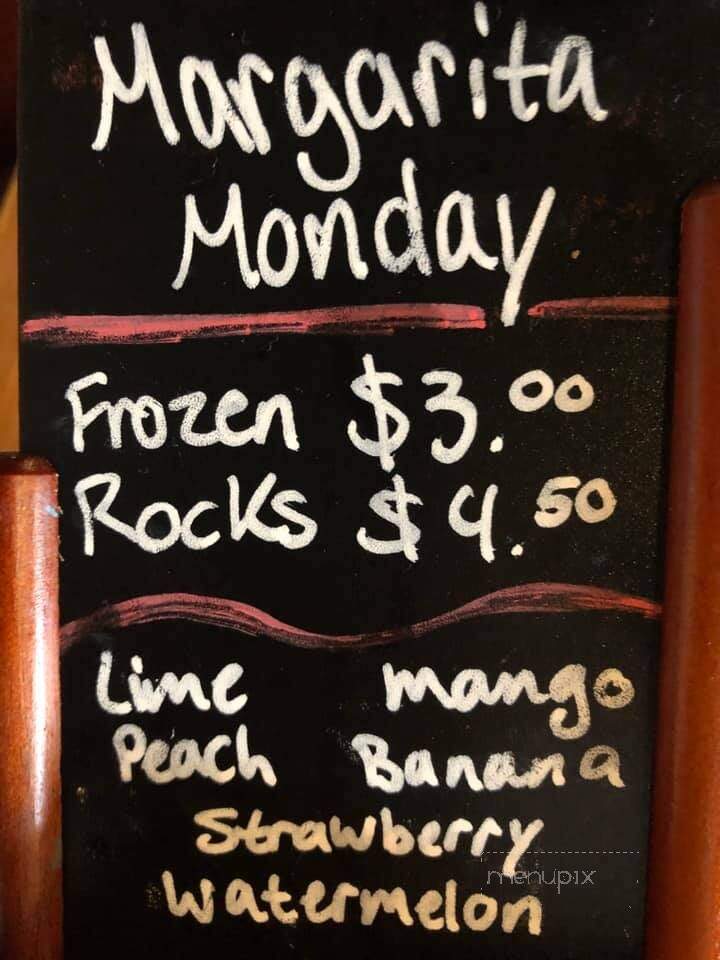 Margarita
Monday
Frozen $3.00
Rocks $4.50
Lime mango
Peach Banana
Strawberry
menupix
Watermelon